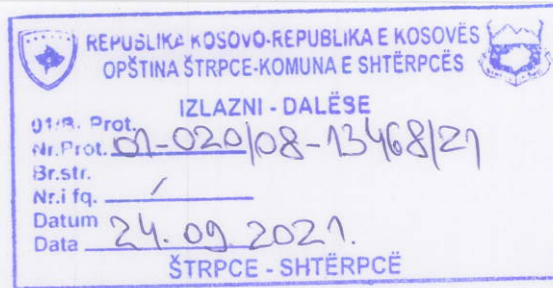 REPUBLIKA KOSOVO-REPUBLIKA E KOSOVËS
OPŠTINA ŠTRPCE-KOMUNA E SHTËRPCËS
IZLAZNI - DALËSE
Prot.
Nr.Prot. 01-020/08-13468/21
Br.str.
Nr.i fq. /
Datum
Data 24.09.2021.
ŠTRPCE - SHTËRPCË